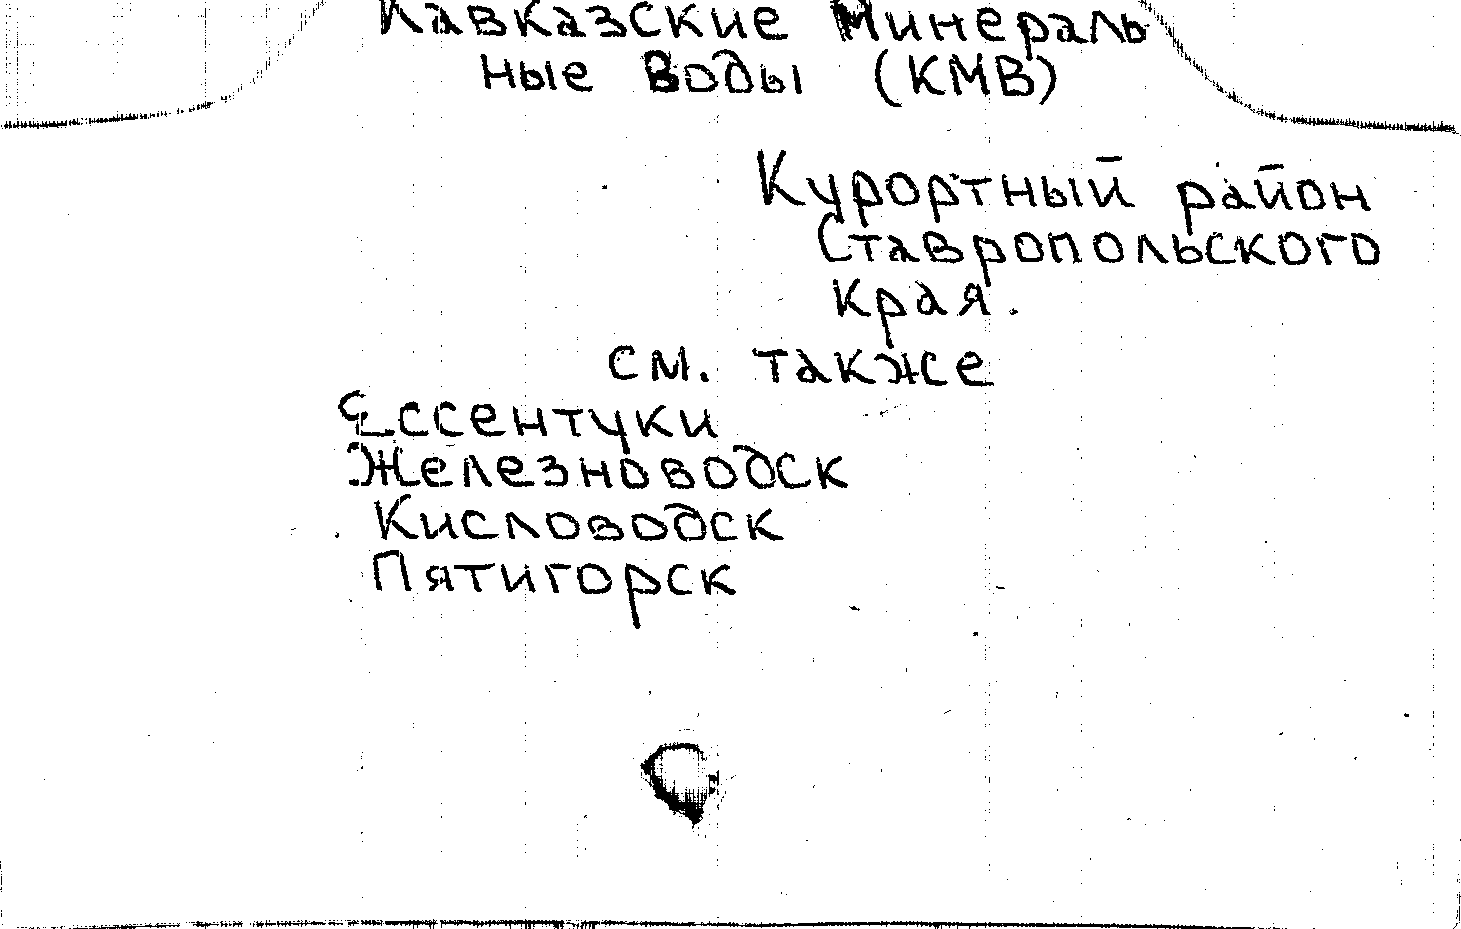 Кавказские Минераль
ные Воды (КМВ)
Курортный район
Ставропольского
края.
см. также
Ессентуки
Железноводск
Кисловодск
Пятигорск